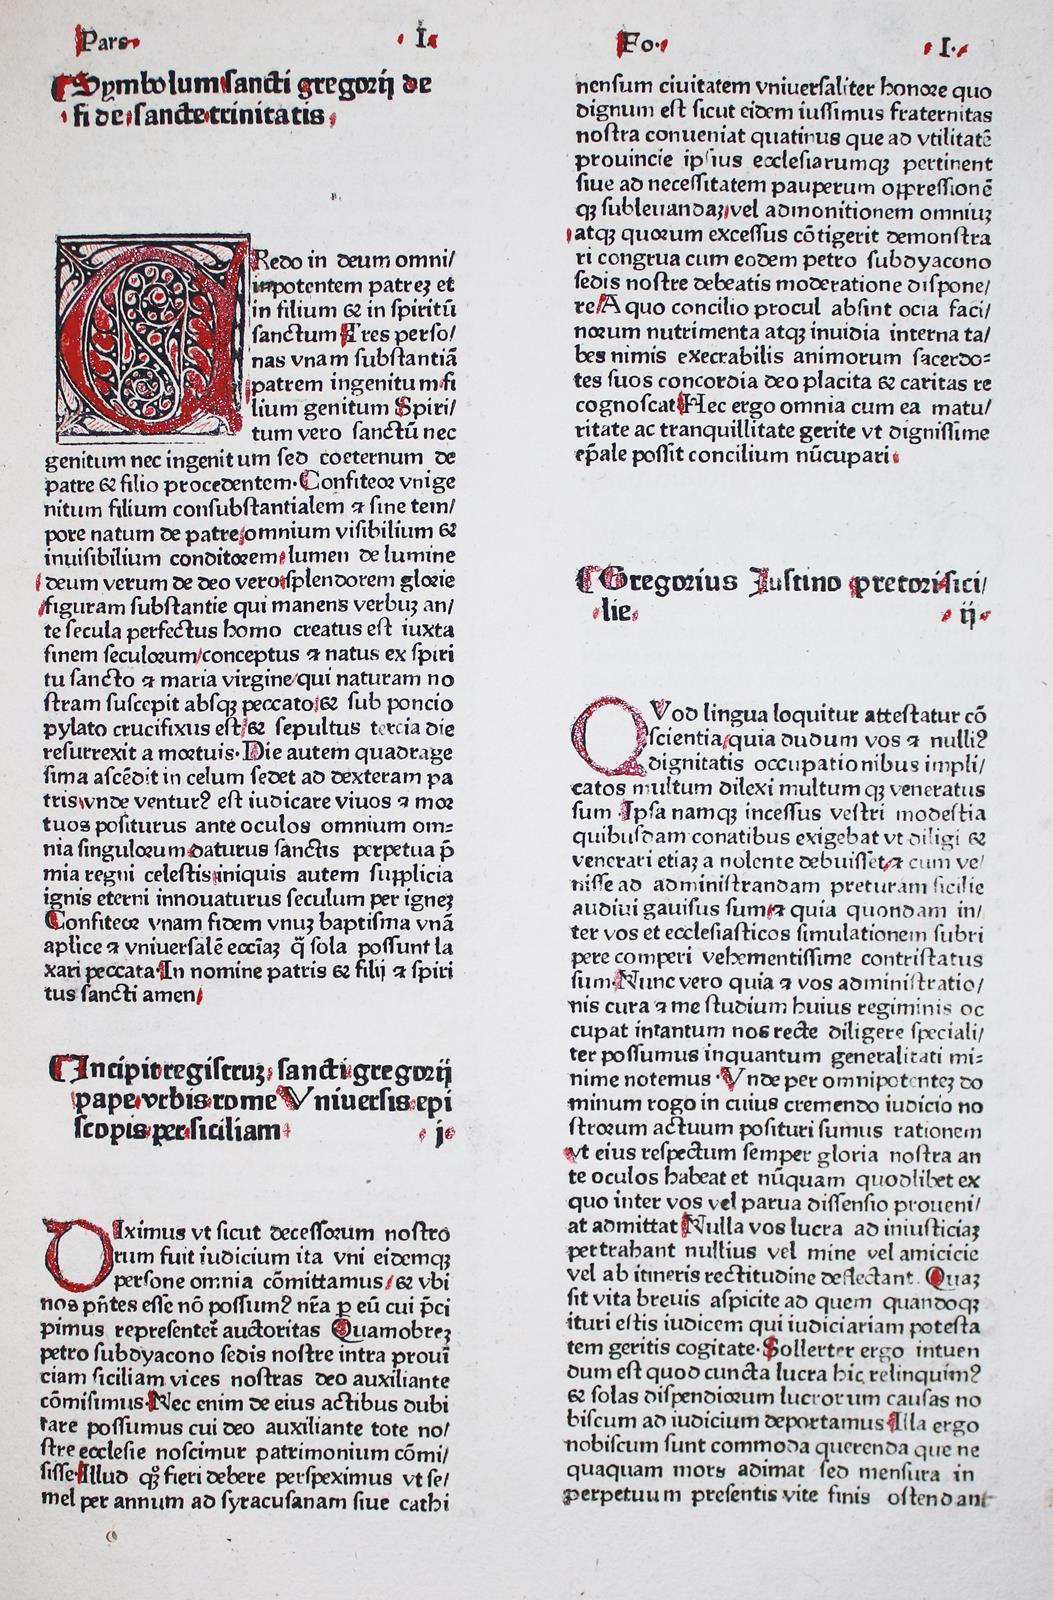 Pars I
Symbolum sancti gregorij de
fide sancte trinitatis
CRedo in deum omni/
ipotentem patreꝫ et
in filium & in spiritū
sanctum Tres perso/
nas vnam substantiā
patrem ingenitum fi
lium genitum Spiri/
tum vero sanctū nec
genitum nec ingenitum sed coeternum de
patre & filio procedentem. Confiteor vnige
nitum filium consubstantialem ⁊ sine tem/
pore natum de patre omnium visibilium &
inuisibilium conditorem lumen de lumine
deum verum de deo vero splendorem glorie
figuram substantie qui manens verbuꝫ an/
te secula perfectus homo creatus est iuxta
finem seculorum/conceptus ⁊ natus ex spiri
tu sancto ⁊ maria virgine/qui naturam no
stram suscepit absqꝫ peccato & sub poncio
pylato crucifixus est & sepultus tercia die
resurrexit a mortuis. Die autem quadrage
sima ascēdit in celum sedet ad dexteram pa
tris vnde ventur? est iudicare viuos ⁊ mor
tuos positurus ante oculos omnium om=
nia singulorum daturus sanctis perpetua p̄
mia regni celestis iniquis autem supplicia
ignis eterni innouaturus seculum per igneꝫ
Confiteor vnam fidem vnuꝫ baptisma vnā
aplice ⁊ vniuersalē ecciaꝫ q̄ sola possunt la
xari peccata In nomine patris & filij ⁊ spiri
tus sancti amen/
Incipit registruꝫ sancti gregorij
pape vrbis rome Vniuersis epi
scopis per siciliam j
DIximus vt sicut decessorum nostro
rum fuit iudicium ita vni eidemqꝫ
persone omnia cōmittamus/& vbi
nos pn̄tes esse nō possum? nr̄a ꝑ eū cui p̄ci
pimus representet̄ auctoritas Quamobreꝫ
petro subdyacono sedis nostre intra prouī
ciam siciliam vices nostras deo auxiliante
cōmisimus Nec enim de eius actibus dubi
tare possumus cui deo auxiliante tote no/
stre ecclesie noscimur patrimonium cōmi/
sisse Illud qꝫ fieri debere perspeximus vt se/
mel per annum ad syracusanam siue cathi
Fo. I.
nensum ciuitatem vniuersaliter honore quo
dignum est sicut eidem iussimus fraternitas
nostra conueniat quatinus que ad vtilitatē
prouincie ipsius ecclesiarumqꝫ pertinent
siue ad necessitatem pauperum oppressionē
qꝫ subleuandaꝫ vel admonitionem omniuꝫ
atqꝫ quorum excessus cōtigerit demonstra
ri congrua cum eodem petro subdyacono
sedis nostre debeatis moderatione dispone/
re/A quo concilio procul absint ocia faci/
norum nutrimenta atqꝫ inuidia interna ta/
bes nimis execrabilis animorum sacerdo=
tes suos concordia deo placita & caritas re
cognoscat Hec ergo omnia cum ea matu/
ritate ac tranquillitate gerite vt dignissime
ep̄ale possit concilium nūcupari
Gregorius Justino pretori sici/
lie ij
QVod lingua loquitur attestatur cō
scientia/quia dudum vos ⁊ nulli?
dignitatis occupationibus impli/
catos multum dilexi multum qꝫ veneratus
sum Ipsa namqꝫ incessus vestri modestia
quibusdam conatibus exigebat vt diligi &
venerari etiaꝫ a nolente debuisset ⁊ cum ve/
nisse ad administrandam preturam sicilie
audiui gauisus sum ⁊ quia quondam in/
ter vos et ecclesiasticos simulationem subri
pere comperi vehementissime contristatus
sum Nunc vero quia ⁊ vos administratio/
nis cura ⁊ me studium huius regiminis oc
cupat intantum nos recte diligere speciali/
ter possumus inquantum generalitati mi=
nime notemus Vnde per omnipotenteꝫ do
minum rogo in cuius cremendo iudicio no
strorum actuum posituri sumus rationem
vt eius respectum semper gloria nostra an
te oculos habeat et nūquam quodlibet ex
quo inter vos vel parua dissensio proueni/
at admittat Nulla vos lucra ad iniusticiaꝫ
pertrahant nullius vel mine vel amicicie
vel ab itineris rectitudine deflectant. Quaꝫ
sit vita breuis aspicite ad quem quandoqꝫ
ituri estis iudicem qui iudiciariam potesta
tem geritis cogitate. Sollerter ergo intuen
dum est quod cuncta lucra hic relinquim?
& solas dispendiorum lucrorum causas no
biscum ad iudicium deportamus Illa ergo
nobiscum sunt commoda querenda que ne
quaquam mors adimat sed mensura in
perpetuum presentis vite finis ostendant